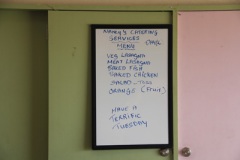 NANCY'S CATERING
SERVICES
MENU
VEG LASAGNA
MEAT LASAGNA
BAKED FISH
BAKED CHICKEN
SALAD
ORANGE (FRUIT)
HAVE A
TERRIFIC
TUESDAY